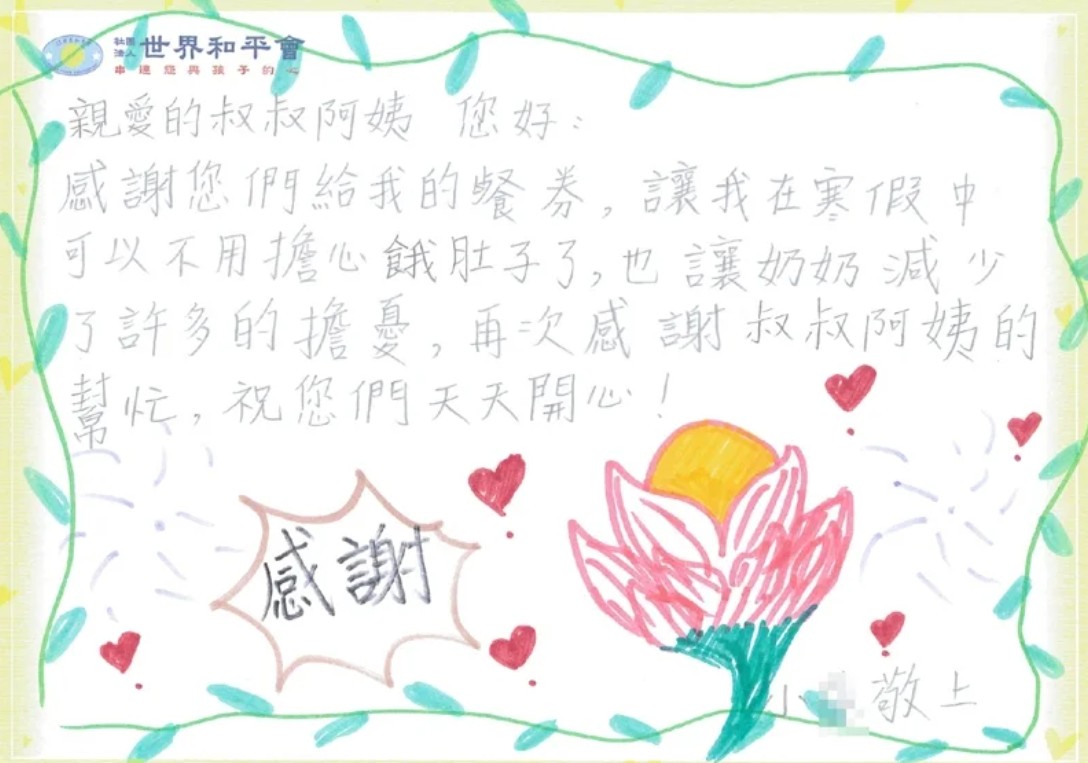 社團法人 世界和平會
串連您與孩子的心
親愛的叔叔阿姨 您好:
感謝您們給我的餐券,讓我在寒假中
可以不用擔心餓肚子了,也讓奶奶減少
了許多的擔憂,再次感謝叔叔阿姨的
幫忙,祝您們天天開心!
感謝
小 敬上